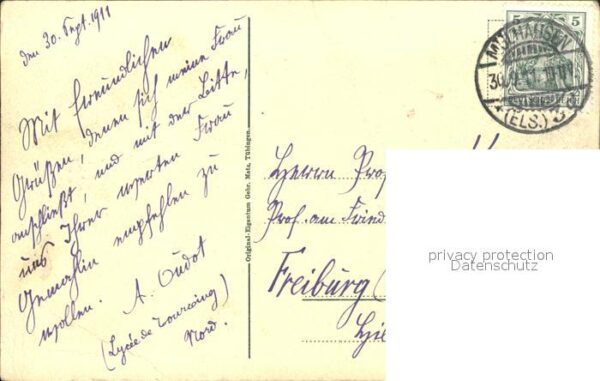 den 30. Sept. 1911
Mit freundlichen
Grüßen, denen sich meine Frau
anschließt, und mit der Bitte,
uns Ihrer werten Frau
Gemahlin empfehlen zu
wollen.
A. Oudot
(Lycée de Tourcoing)
Nord.
Original-Eigentum Gebr. Metz, Tübingen
5 5
MÜLHAUSEN
(ELS.) 3
Herrn Prof
Prof. am Fried
Freiburg (
privacy protection
Datenschutz